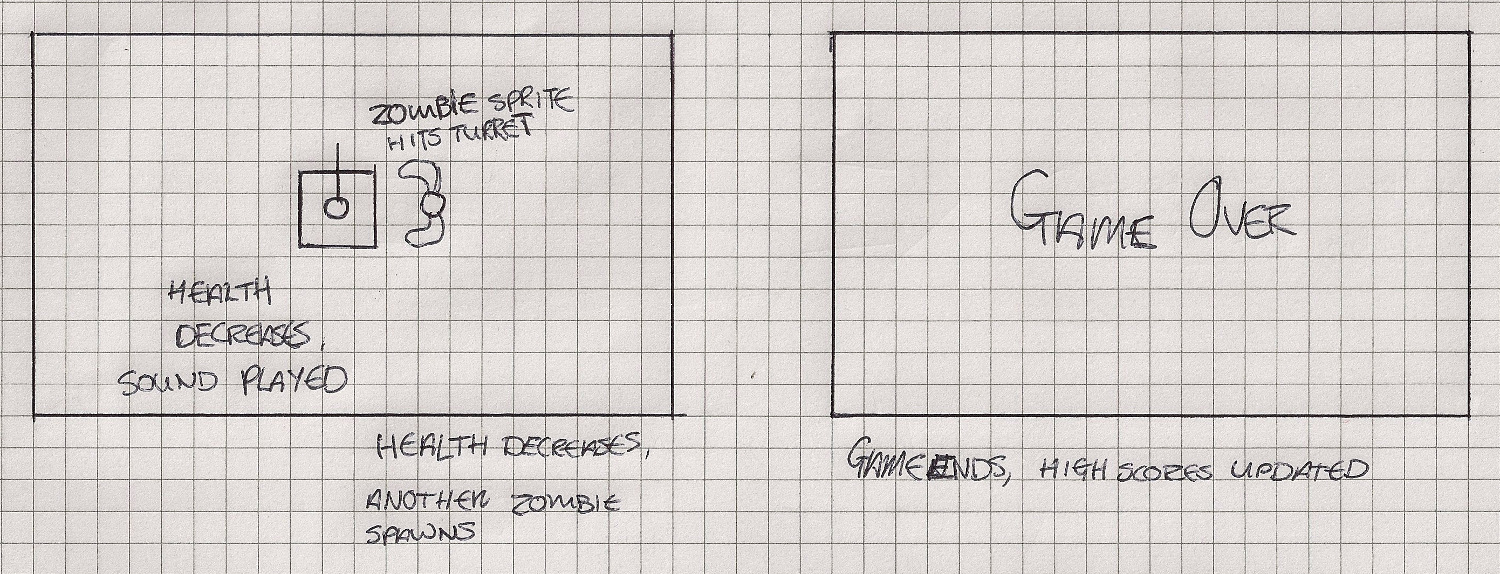 ZOMBIE SPRITE
HITS TURRET
HEALTH
DECREASES,
SOUND PLAYED
HEALTH DECREASES,
ANOTHER ZOMBIE
SPAWNS
GAME OVER
GAME ENDS, HIGH SCORES UPDATED